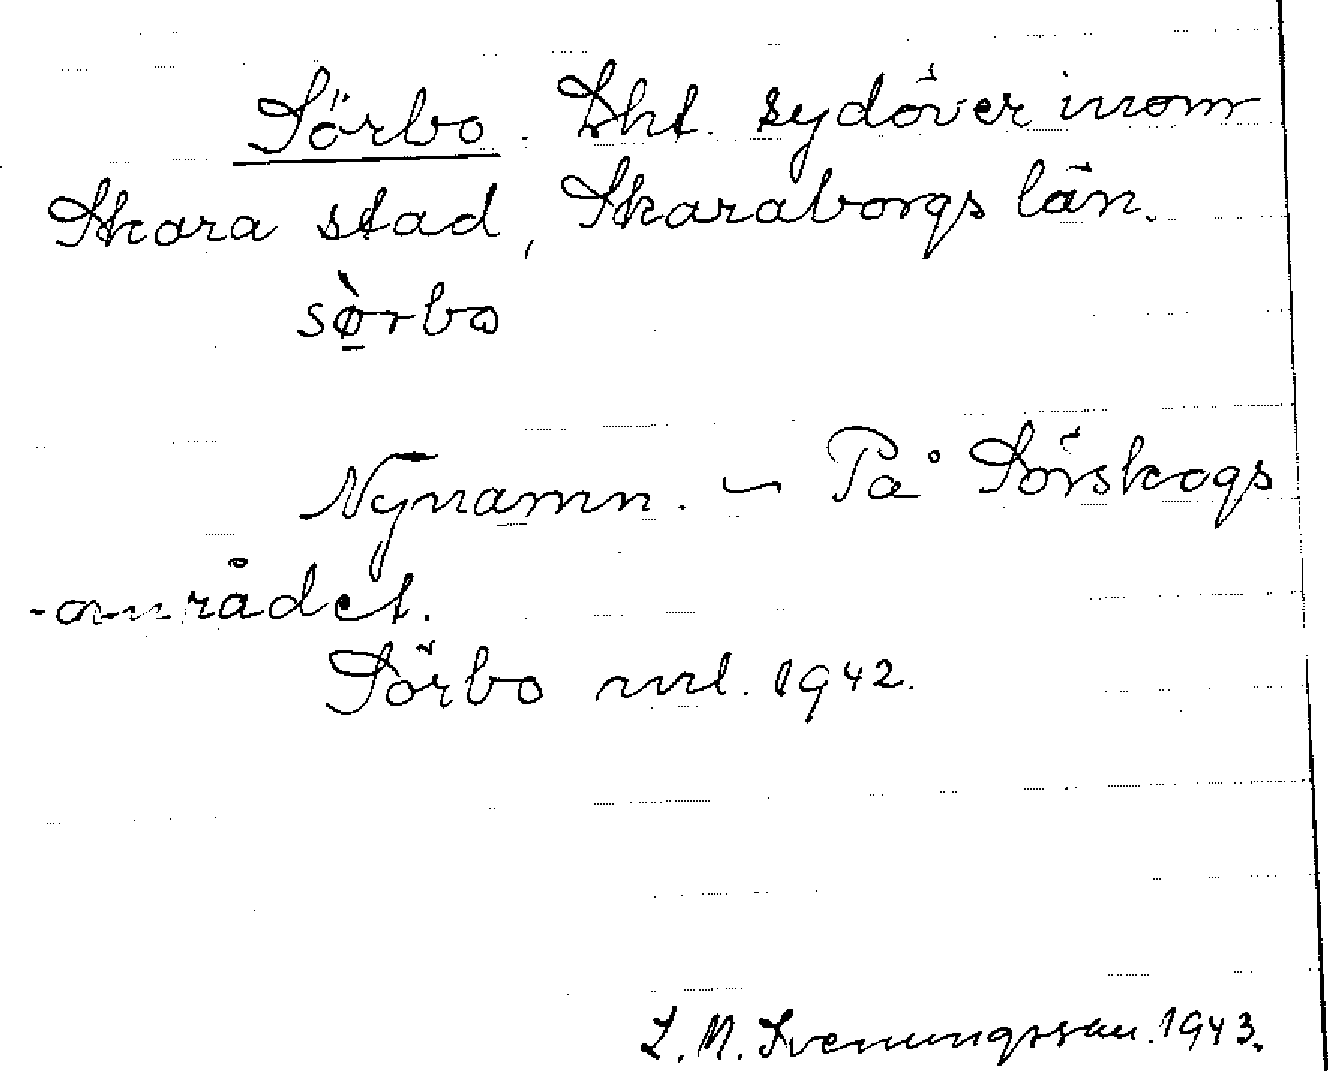 Sörbo. Lht. sydöver inom
Skara stad, Skaraborgs län.
sø̀rbo
Nynamn. – På Sörskogs
-området.
Sörbo mrl. 1942.
L. M. Svenungsson. 1943.